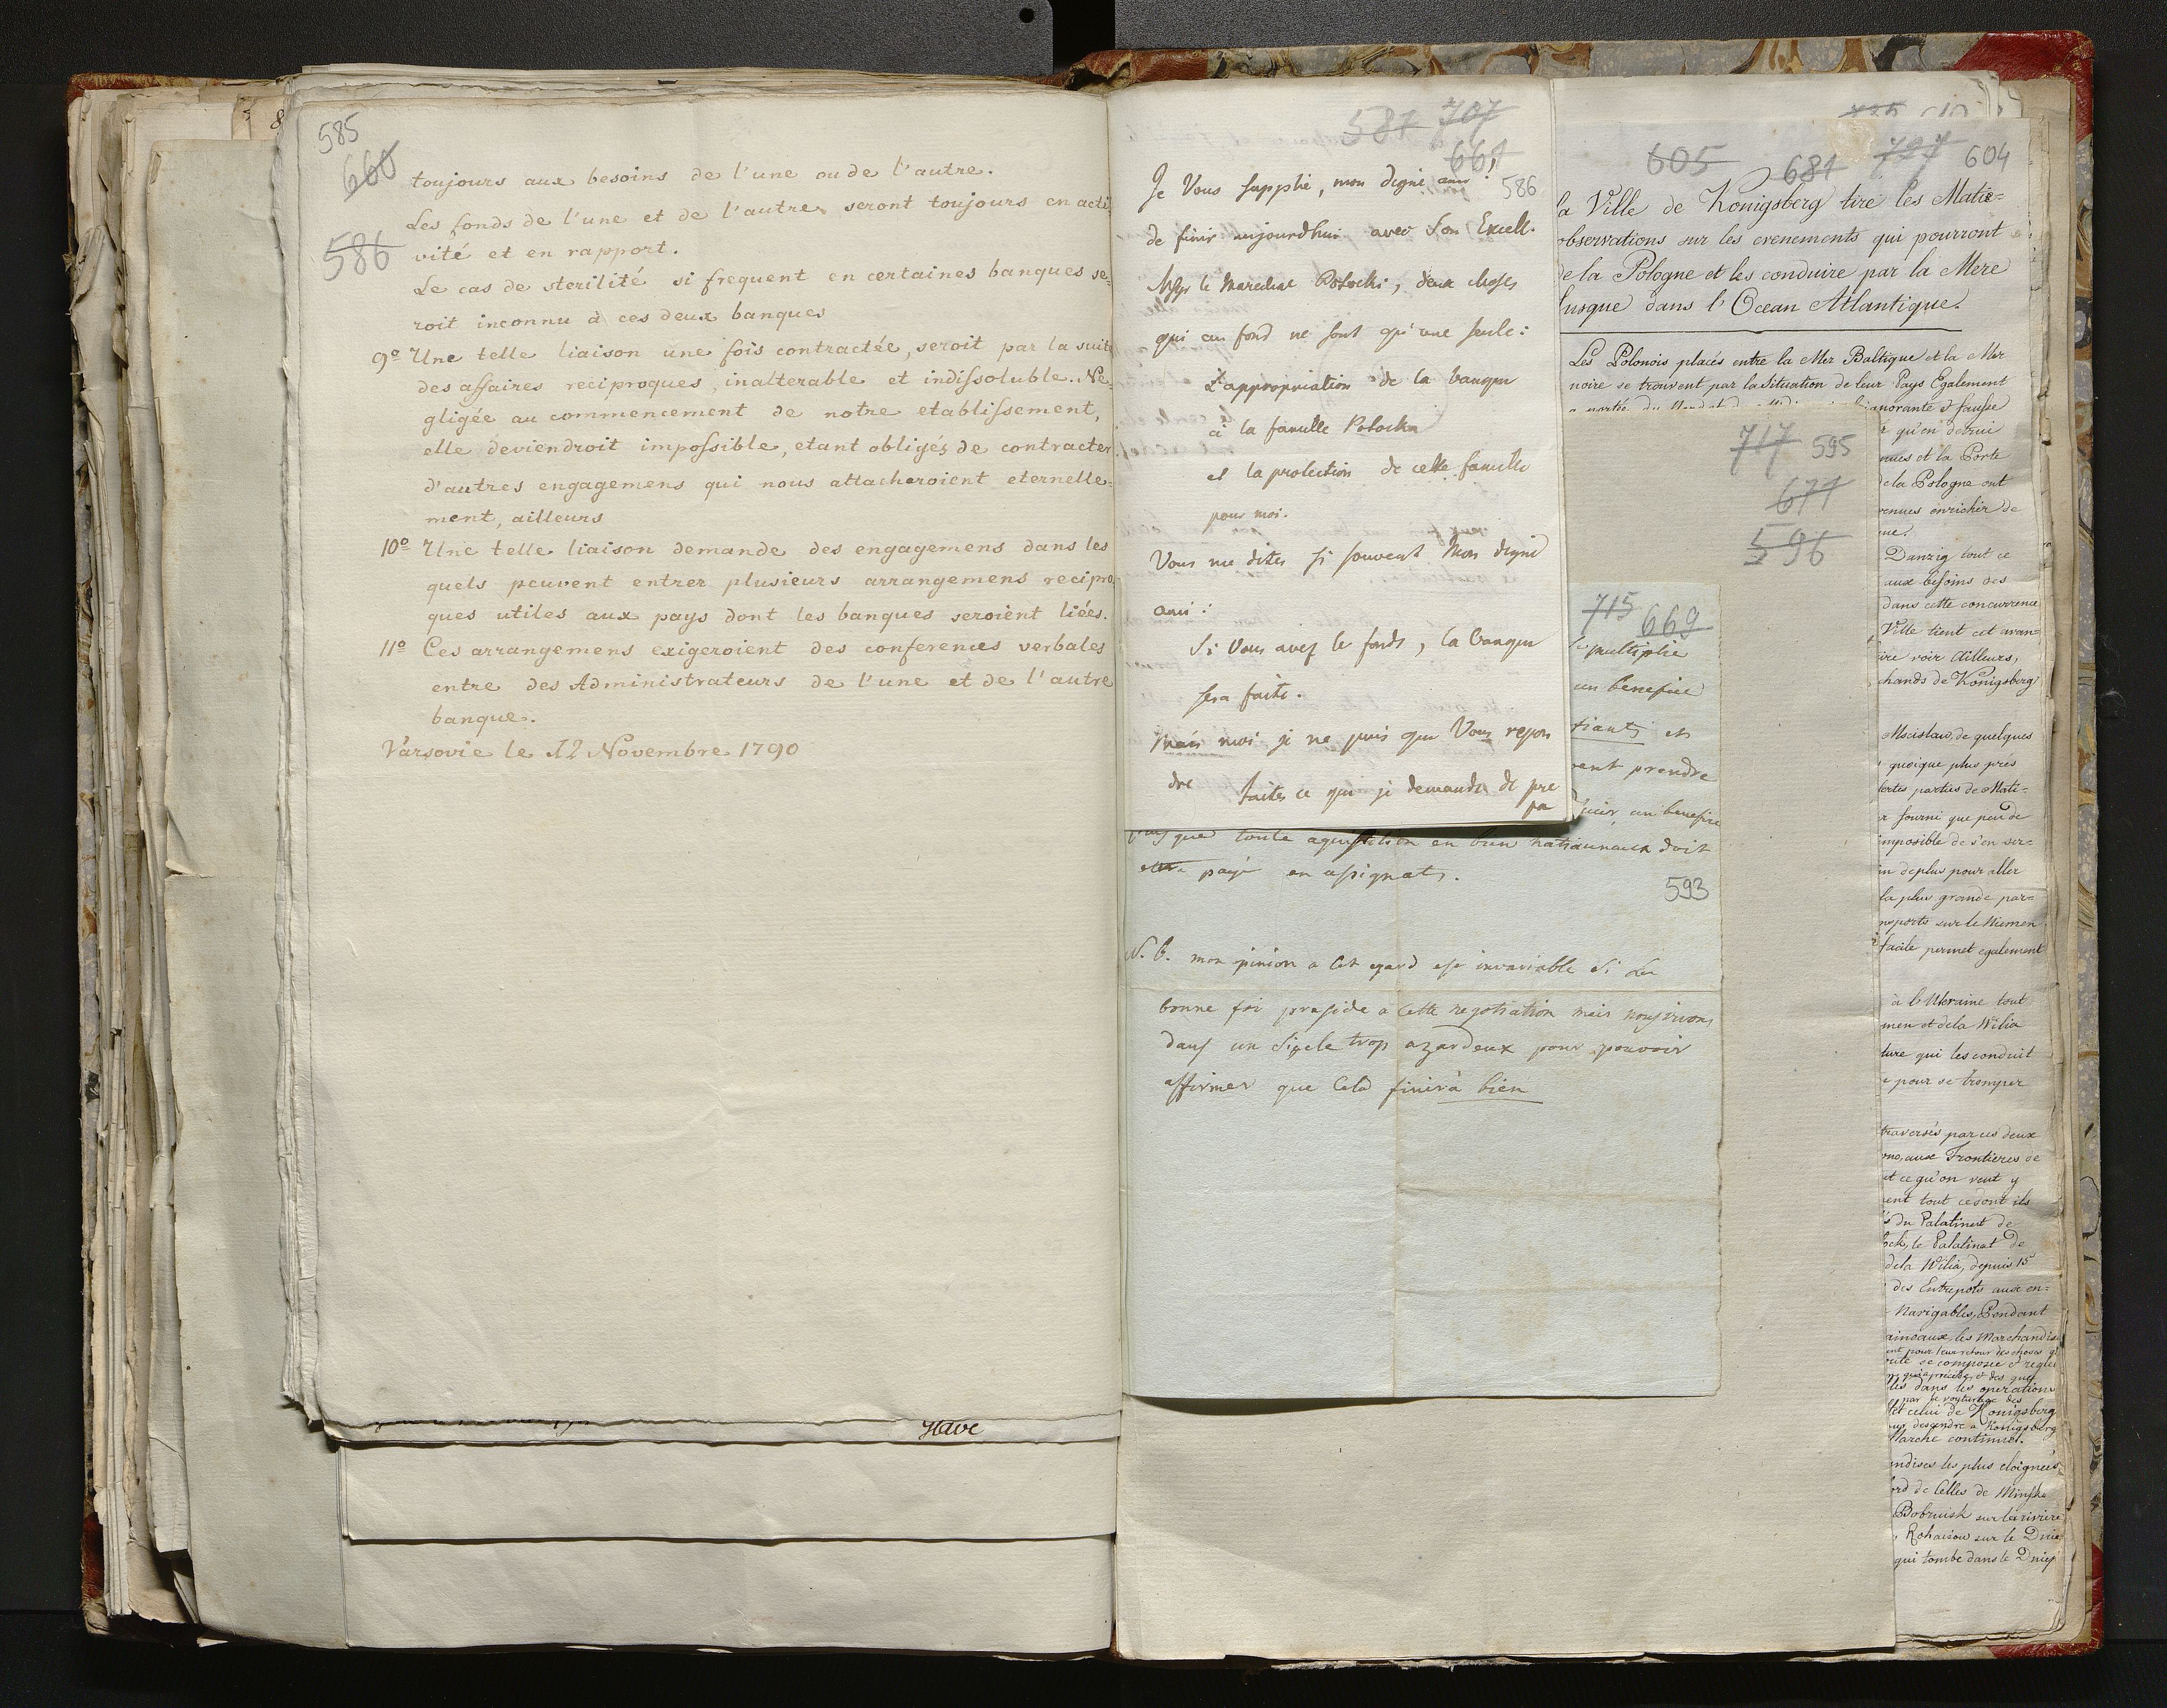 585
660
toujours aux besoins de l'une ou de l'autre.
Les fonds de l'une et de l'autre seront toujours en acti
586
vité et en rapport.
Le cas de sterilité si frequent en certaines banques se=
roit inconnu à ces deux banques
9º Une telle liaison une fois contractée, seroit par la suite
des affaires reciproques, inalterable et indissoluble. Né=
gligée au commencement de notre etablissement,
elle deviendroit impossible, etant obligés de contracter
d'autres engagemens qui nous attacheroient eternelle=
ment, ailleurs
10º Une telle liaison demande des engagemens dans les
quels peuvent entrer plusieurs arrangemens recipro
ques utiles aux pays dont les banques seroient liées.
11º Ces arrangemens exigeroient des conferences verbales
entre des Administrateurs de l'une et de l'autre
banque.
Varsovie le 12 Novembre 1790
587 707
661
586
Je Vous supplie, mon digne ami!
de finir aujourdhui avec Son Excell.
Msgr le Marechal Potocki, deux choses
qui au fond ne sont qu'une seule:
L'appropriation de la banque
à la famille Potocka
et la protection de cette famille
pour moi.
Vous me dites si souvent Mon digne
ami:
Si Vous avez le fonds, la banque
sera faite.
Mais moi je ne puis que Vous repon
dre faites ce que je demande de pre
715 669
multiplie
un benefice
et
vent prendre
un benefice
que toute aquisition en bien nationnaux doit
payé en assignats.
593
N. B. mon opinion a cet egard est invariable si la
bonne foi preside a cette negotiation mais nous vivons
dans un Siecle trop azardeux pour pouvoir
affirmer que Cela finira bien
717 595
671
596
605 681 727 604
la Ville de Konigsberg tire les Matie=
observations sur les evenements qui pourront
de la Pologne et les conduire par la Mere
Jusque dans l'Ocean Atlantique.
Les Polonois placés entre la Mer Baltique et la Mer
noire se trouvent par la Situation de leur Pays Egalement
ignorante et fausse
qu'en
et la Porte
de la Pologne ont
enrichir de
Danzig tout ce
aux besoins des
dans cette concurrence
Ville tient cet avan=
voir Ailleurs,
chands de Konigsberg
Mscislaw, de quelques
quoique plus près
parties de Mati=
fourni que peu de
impossible de s'en ser=
de plus pour aller
la plus grande par=
sur le Niemen
facile permet egalement
a l'Ukraine tout
men et de la Wilia
ture qui les conduit
pour se tromper
traversés par ces deux
aux Frontieres de
et ce qu'on veut y
tout ce dont ils
du Palatinat de
le Palatinat de
de la Wilia, depuis 15
des Entrepots aux en=
Navigables, Pendant
les Marchandis
pour leur retour des choses
se compose et regle
dans les operations
et celui de Konigsberg
descendre a Konigsberg
Marche continuel.
les plus eloignées
de Celles de Minsk
Bobruisk sur la riviere
sur le
qui tombe dans le